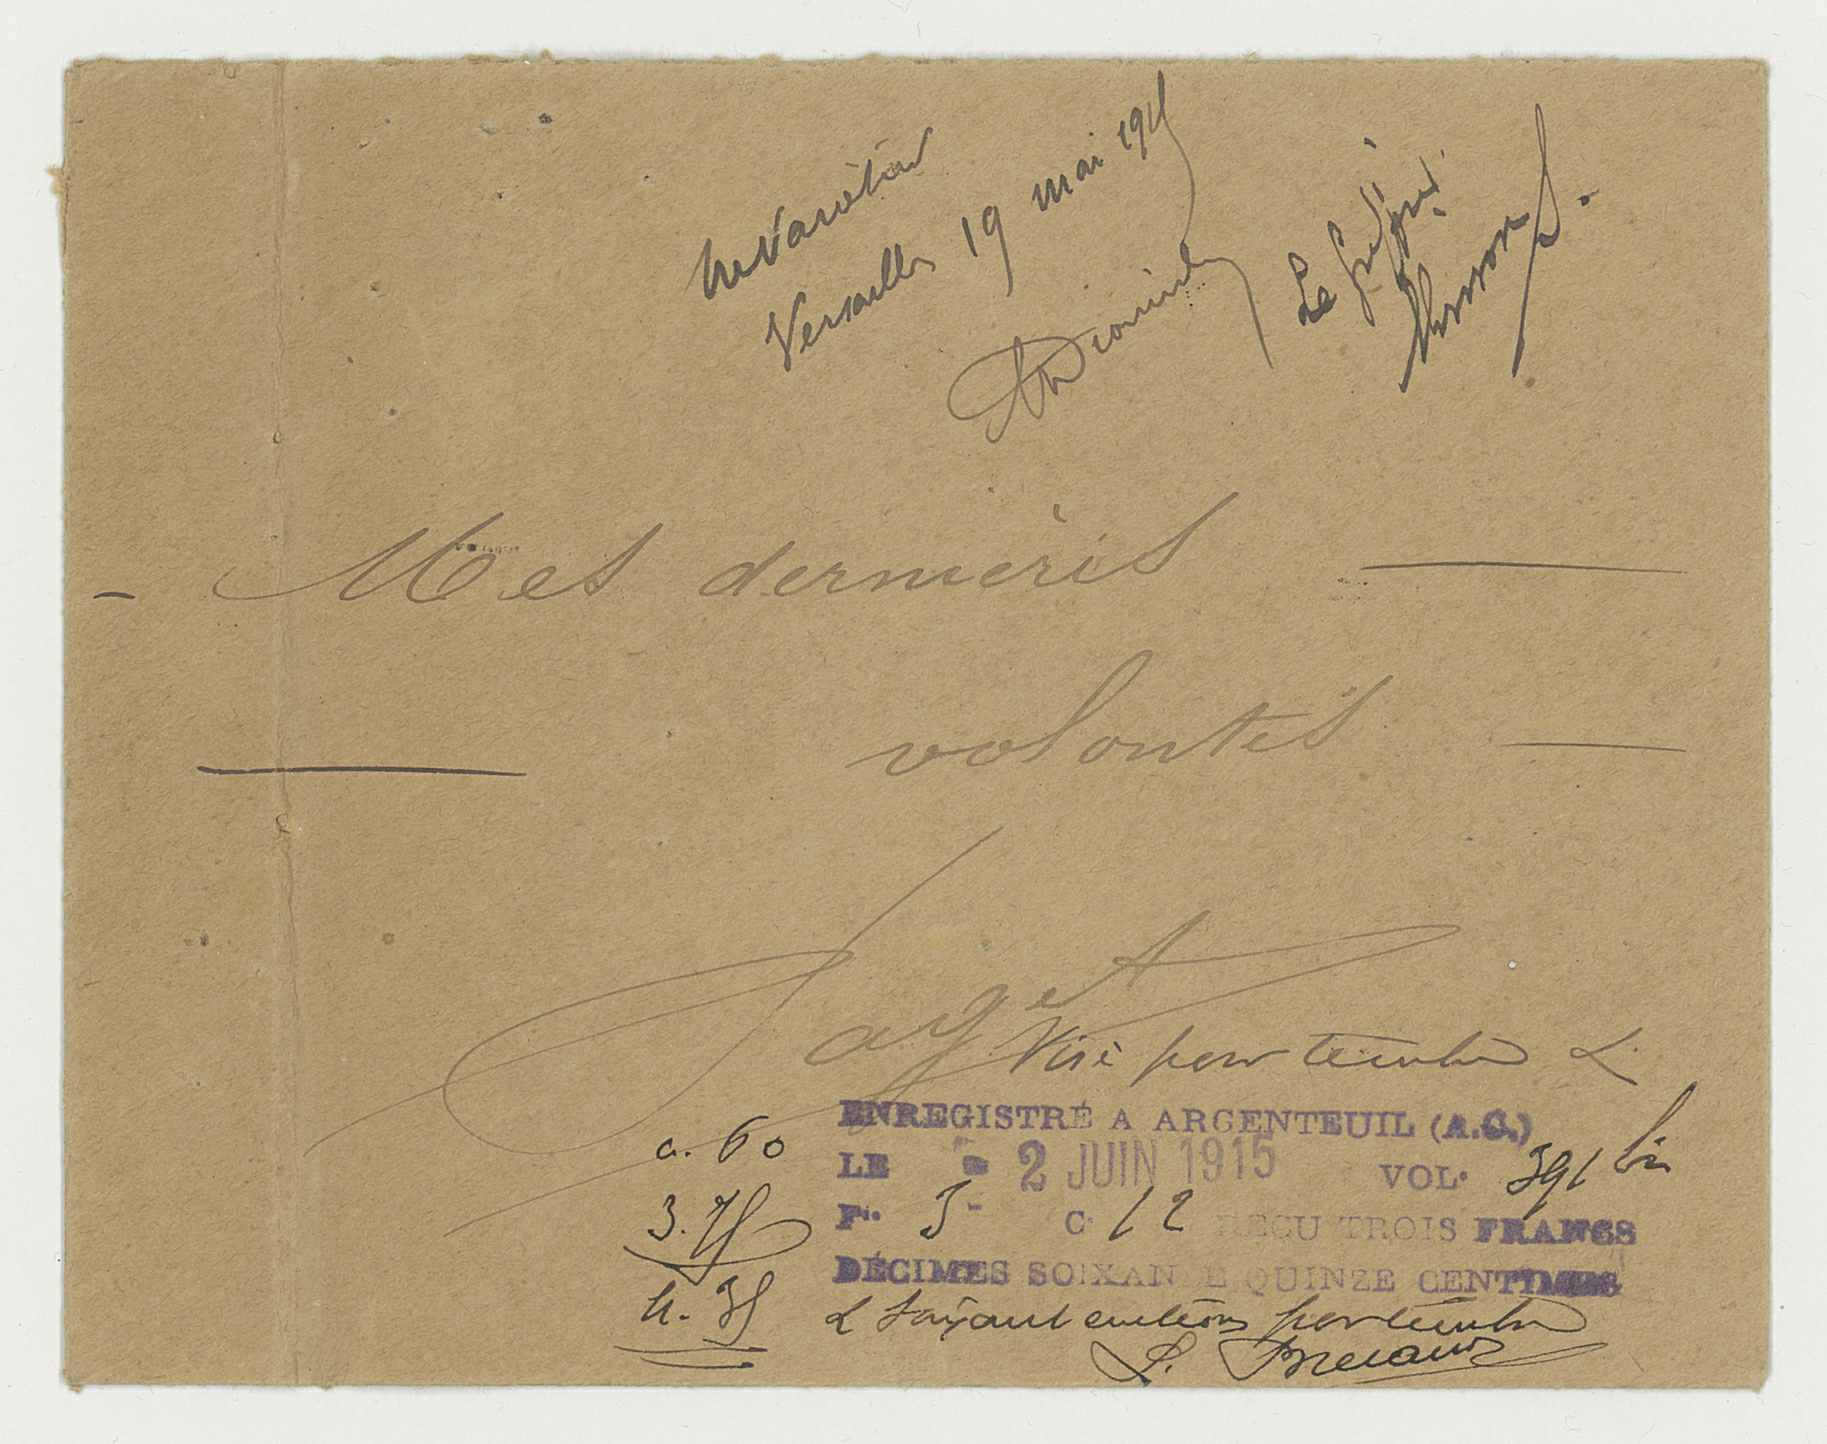 Ne Varietur
Versailles 19 mai 1915
Le greffier
- Mes dernières —
— volontés —
Saget
Visé pour timbre &
ENREGISTRÉ A ARGENTEUIL (A.C.)
LE - 2 JUIN 1915 VOL. 391 bis
F° 5 C. 12 REÇU TROIS FRANCS
DÉCIMES SOIXANTE QUINZE CENTIMES
& soixante centimes pour timbre
0.60
3.75
4.35